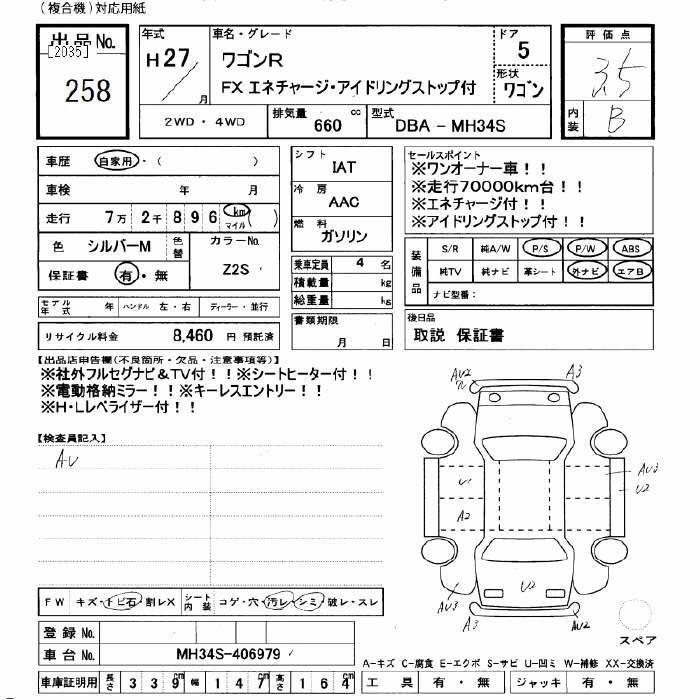 (複合機)対応用紙
出品No.
[2035]
258
年式
H27
月
車名・グレード
ワゴンR
FX エネチャージ・アイドリングストップ付
ドア
5
形状
ワゴン
評価点
3.5
内装
B
2WD・4WD
排気量
660
cc
型式
DBA-MH34S
車歴
自家用・( )
車検 年 月
走行 7万 2千 8 9 6 km マイル ( )
色 シルバーM
色替
カラーNo.
Z2S
保証書 有・無
モデル年式 年 ハンドル 左・右 ディーラー・並行
リサイクル料金 8,460 円 預託済
シフト
IAT
冷房
AAC
燃料
ガソリン
乗車定員 4 名
積載量 kg
総重量 kg
書類期限
月 日
セールスポイント
※ワンオーナー車!!
※走行70000km台!!
※エネチャージ付!!
※アイドリングストップ付!!
装備品
S/R 純A/W P/S P/W ABS
純TV 純ナビ 革シート 外ナビ エアB
ナビ型番:
後日品
取説 保証書
【出品店申告欄(不良箇所・欠品・注意事項等)】
※社外フルセグナビ&TV付!!※シートヒーター付!!
※電動格納ミラー!!※キーレスエントリー!!
※H・Lレベライザー付!!
【検査員記入】
AU
AU2
A3
U1
A2
AU3
U2
U2
AU3
A3
AU2
スペア
FW キズ・トビ石・割レX
シート内装 コゲ・穴・汚レ・シミ・破レ・スレ
登録No.
車台No. MH34S-406979
車庫証明用 長さ 3 3 9 cm 幅 1 4 7 cm 高さ 1 6 4 cm
A-キズ C-腐食 E-エクボ S-サビ U-凹ミ W-補修 XX-交換済
工具 有・無 ジャッキ 有・無